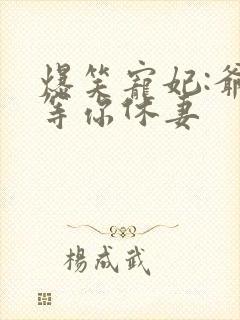 爆笑寵妃:爺
等你休妻
楊成武